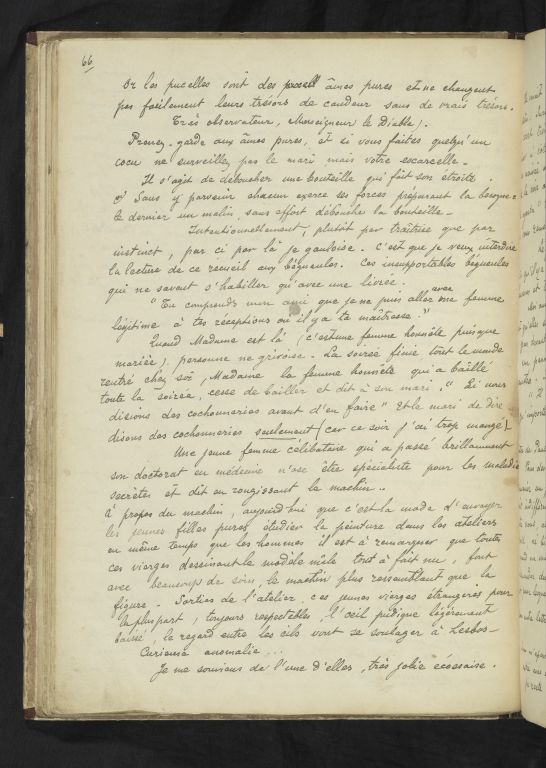 66
Or les pucelles sont des pucell âmes pures et ne changent
pas facilement leurs trésors de candeur sans de vrais trésors.
Très observateur, Monseigneur le Diable).
Prenez-garde aux âmes pures, et si vous faites quelqu'un
cocu ne surveillez pas le mari mais votre escarcelle.
Il s'agit de déboucher une bouteille qui fait son étroite.
Sans y parvenir chacun exerce ses forces préparant la besogne:
le dernier un malin, sans effort débouche la bouteille -
Intentionnellement, plutôt par traîtrise que par
instinct, par ci par là je gauloise. C'est que je veux interdire
la lecture de ce recueil aux bégueules. Ces insupportables bégueules
qui ne savent s'habiller qu'avec une livrée.
"Tu comprends mon ami que je ne puis aller avec ma femme
légitime à tes réceptions où il y a ta maîtresse."
Quand Madame est là (c'est une femme honnête puisque
mariée), personne ne grivoise. La soirée finie tout le monde
rentré chez soi, Madame la femme honnête qui a baillé
toute la soirée, cesse de bailler et dit à son mari, "Si nous
disions des cochonneries avant d'en faire" Et le mari de dire
disons des cochonneries seulement (car ce soir j'ai trop mangé)
Une jeune femme célibataire qui a passé brillamment
son doctorat en médecine n'ose être spécialiste pour les maladies
secrètes et dit en rougissant le machin..
à propos du machin, aujourd'hui que c'est la mode d'envoyer
les jeunes filles pures étudier la peinture dans les ateliers
en même temps que les hommes il est à remarquer que toutes
ces vierges dessinant le modèle mâle tout à fait nu, font
avec beaucoup de soin, le machin plus ressemblant que la
figure. Sorties de l'atelier, ces jeunes vierges étrangères pour
la pluspart, toujours respectables, l'œil pudique légèrement
baissé, le regard entre les cils vont se soulager à Lesbos -
Curieuse anomalie...
Je me souviens de l'une d'elles, très jolie écossaise.